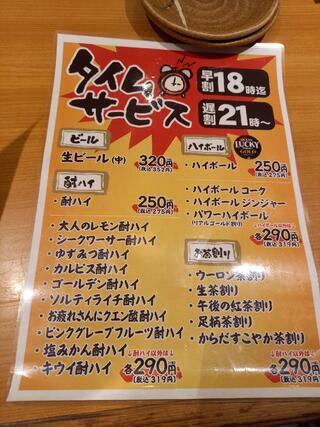 タイムサービス
早割 18時迄
遅割 21時~
ビール
生ビール(中) 320円
(税込352円)
酎ハイ
・酎ハイ 250円
(税込275円)
・大人のレモン酎ハイ
・シークワーサー酎ハイ
・ゆずみつ酎ハイ
・カルピス酎ハイ
・ゴールデン酎ハイ
・ソルティライチ酎ハイ
・お疲れさんにクエン酸酎ハイ
・ピンクグレープフルーツ酎ハイ
・塩みかん酎ハイ
・キウイ酎ハイ
↓酎ハイ以外は↓
各290円
(税込319円)
ハイボール
LUCKY
GOLD
・ハイボール 250円
(税込275円)
・ハイボール コーク
・ハイボール ジンジャー
・パワーハイボール
(リアルゴールド割り)
↓ハイボール以外は↓
各290円
(税込319円)
お茶割り
・ウーロン茶割り
・生茶割り
・午後の紅茶割り
・足柄茶割り
・からだすこやか茶割り
↓酎ハイ以外は↓
各290円
(税込319円)